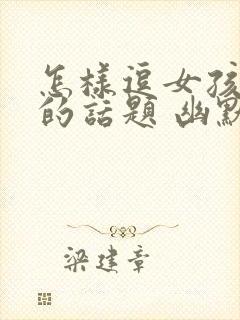 怎様逗女孩
的話題 幽默
梁建章